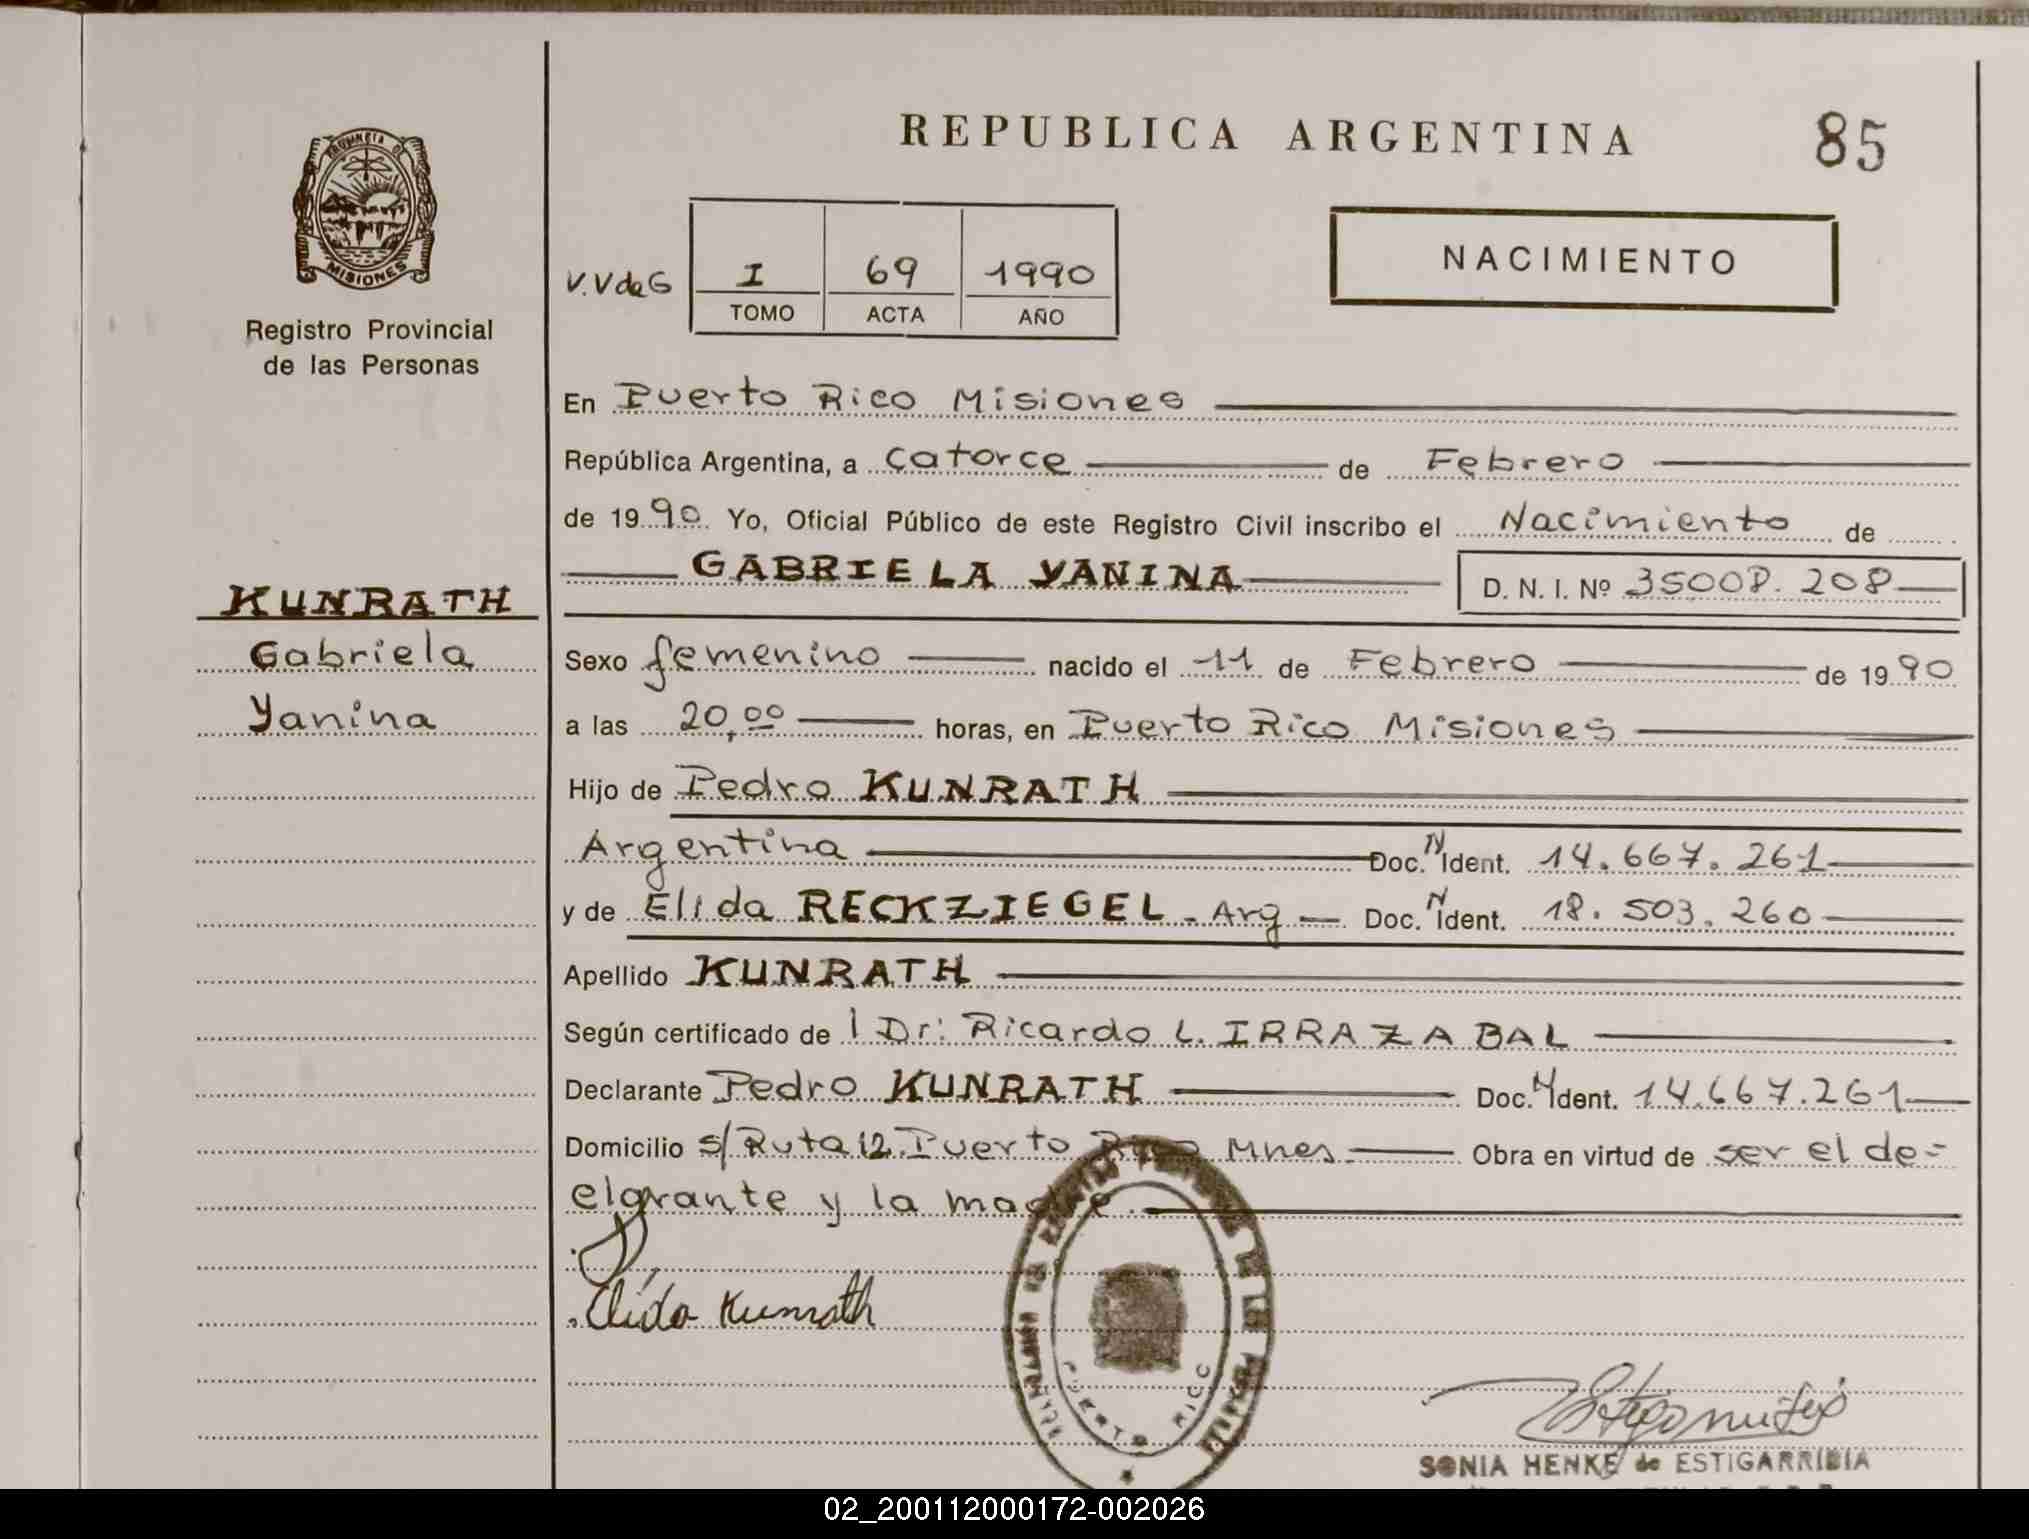 PROVINCIA DE
MISIONES
Registro Provincial
de las Personas
KUNRATH
Gabriela
Yanina
REPUBLICA ARGENTINA 85
V.V de G I 69 1990
TOMO ACTA AÑO
NACIMIENTO
En Puerto Rico Misiones
República Argentina, a catorce de Febrero
de 1990 Yo, Oficial Público de este Registro Civil inscribo el Nacimiento de
GABRIELA YANINA D. N. I. Nº 35008.208
Sexo femenino nacido el 11 de Febrero de 1990
a las 20,00 horas, en Puerto Rico Misiones
Hijo de Pedro KUNRATH
Argentina Doc. N Ident. 14.667.261
y de Elida RECKZIEGEL - Arg - Doc. N Ident. 18.503.260
Apellido KUNRATH
Según certificado de l Dr: Ricardo L. IRRAZABAL
Declarante Pedro KUNRATH Doc. N Ident. 14.667.261
Domicilio s/ Ruta 12. Puerto Rico Mnes Obra en virtud de ser el de=
elgrante y la madre.
Elida Kunrath
PUERTO RICO
SONIA HENKE de ESTIGARRIBIA
02_200112000172-002026